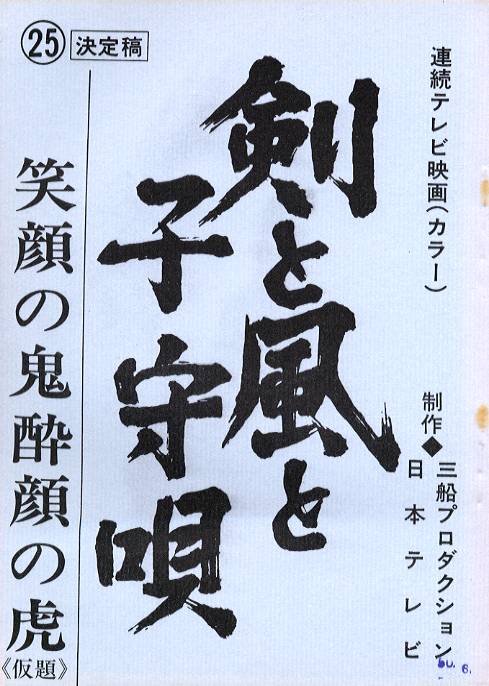 連続テレビ映画(カラー)
制作◆三船プロダクション
日本テレビ
剣と風と
子守唄
㉕ 決定稿
笑顔の鬼酔顔の虎
《仮題》